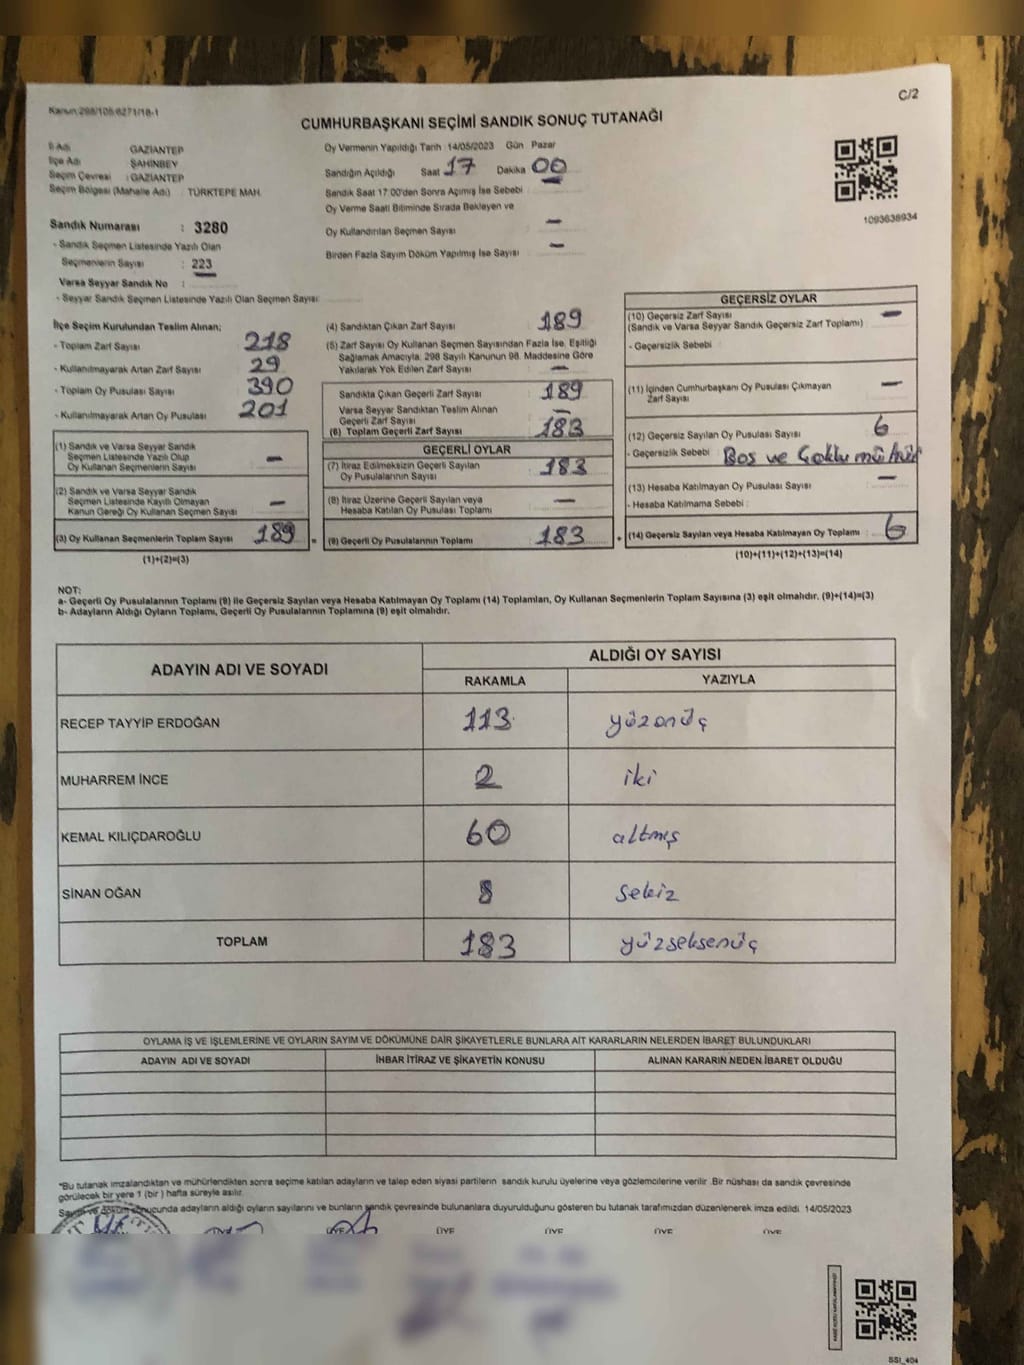 Kanun:298/105/6271/18-1
C/2
CUMHURBAŞKANI SEÇİMİ SANDIK SONUÇ TUTANAĞI
İl Adı GAZİANTEP
İlçe Adı ŞAHİNBEY
Seçim Çevresi : GAZİANTEP
Seçim Bölgesi (Mahalle Adı) : TÜRKTEPE MAH.
Sandık Numarası : 3280
- Sandık Seçmen Listesinde Yazılı Olan
Seçmenlerin Sayısı : 223
Varsa Seyyar Sandık No :
- Seyyar Sandık Seçmen Listesinde Yazılı Olan Seçmen Sayısı:
Oy Vermenin Yapıldığı Tarih : 14/05/2023 Gün Pazar
Sandığın Açıldığı Saat 17 Dakika 00
Sandık Saat 17:00'den Sonra Açılmış İse Sebebi :
Oy Verme Saati Bitiminde Sırada Bekleyen ve
Oy Kullandırılan Seçmen Sayısı : —
Birden Fazla Sayım Döküm Yapılmış İse Sayısı : —
1093638934
İlçe Seçim Kurulundan Teslim Alınan;
- Toplam Zarf Sayısı : 218
- Kullanılmayarak Artan Zarf Sayısı : 29
- Toplam Oy Pusulası Sayısı : 390
- Kullanılmayarak Artan Oy Pusulası : 201
(1) Sandık ve Varsa Seyyar Sandık
Seçmen Listesinde Yazılı Olup
Oy Kullanan Seçmenlerin Sayısı : —
(2) Sandık ve Varsa Seyyar Sandık
Seçmen Listesinde Kayıtlı Olmayan
Kanun Gereği Oy Kullanan Seçmen Sayısı : —
(3) Oy Kullanan Seçmenlerin Toplam Sayısı : 189
(1)+(2)=(3)
(4) Sandıktan Çıkan Zarf Sayısı : 189
(5) Zarf Sayısı Oy Kullanan Seçmen Sayısından Fazla İse, Eşitliği
Sağlamak Amacıyla, 298 Sayılı Kanunun 98. Maddesine Göre
Yakılarak Yok Edilen Zarf Sayısı : —
Sandıkta Çıkan Geçerli Zarf Sayısı : 189
Varsa Seyyar Sandıktan Teslim Alınan
Geçerli Zarf Sayısı : —
(6) Toplam Geçerli Zarf Sayısı : 183
GEÇERLİ OYLAR
(7) İtiraz Edilmeksizin Geçerli Sayılan
Oy Pusulalarının Sayısı : 183
(8) İtiraz Üzerine Geçerli Sayılan veya
Hesaba Katılan Oy Pusulası Toplamı : —
(9) Geçerli Oy Pusulalarının Toplamı : 183
GEÇERSİZ OYLAR
(10) Geçersiz Zarf Sayısı : —
(Sandık ve Varsa Seyyar Sandık Geçersiz Zarf Toplamı)
- Geçersizlik Sebebi :
(11) İçinden Cumhurbaşkanı Oy Pusulası Çıkmayan
Zarf Sayısı : —
(12) Geçersiz Sayılan Oy Pusulası Sayısı : 6
- Geçersizlik Sebebi : Boş ve Çoklu mühür
(13) Hesaba Katılmayan Oy Pusulası Sayısı : —
- Hesaba Katılmama Sebebi :
(14) Geçersiz Sayılan veya Hesaba Katılmayan Oy Toplamı : 6
(10)+(11)+(12)+(13)=(14)
NOT:
a- Geçerli Oy Pusulalarının Toplamı (9) ile Geçersiz Sayılan veya Hesaba Katılmayan Oy Toplamı (14) Toplamları, Oy Kullanan Seçmenlerin Toplam Sayısına (3) eşit olmalıdır. (9)+(14)=(3)
b- Adayların Aldığı Oyların Toplamı, Geçerli Oy Pusulalarının Toplamına (9) eşit olmalıdır.
ADAYIN ADI VE SOYADI ALDIĞI OY SAYISI
RAKAMLA YAZIYLA
RECEP TAYYİP ERDOĞAN 113 yüzonüç
MUHARREM İNCE 2 iki
KEMAL KILIÇDAROĞLU 60 altmış
SİNAN OĞAN 8 sekiz
TOPLAM 183 yüzseksenüç
OYLAMA İŞ VE İŞLEMLERİNE VE OYLARIN SAYIM VE DÖKÜMÜNE DAİR ŞİKAYETLERLE BUNLARA AİT KARARLARIN NELERDEN İBARET BULUNDUKLARI
ADAYIN ADI VE SOYADI İHBAR İTİRAZ VE ŞİKAYETİN KONUSU ALINAN KARARIN NEDEN İBARET OLDUĞU
*Bu tutanak imzalandıktan ve mühürlendikten sonra seçime katılan adayların ve talep eden siyasi partilerin sandık kurulu üyelerine veya gözlemcilerine verilir .Bir nüshası da sandık çevresinde
görülecek bir yere 1 (bir ) hafta süreyle asılır.
Sayım ve döküm sonucunda adayların aldığı oyların sayılarını ve bunların sandık çevresinde bulunanlara duyurulduğunu gösteren bu tutanak tarafımızdan düzenlenerek imza edildi. 14/05/2023
ÜYE ÜYE ÜYE ÜYE ÜYE
SSİ_404